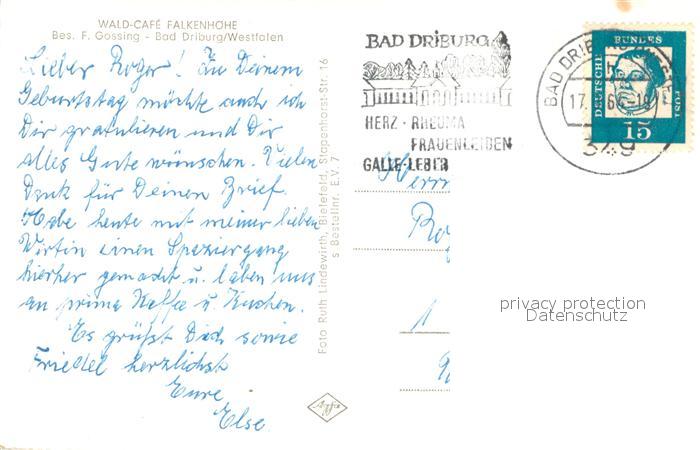 WALD-CAFÉ FALKENHÖHE
Bes. F. Gossing - Bad Driburg/Westfalen
Lieber Roger! Zu Deinem
Geburtstag möchte auch ich
Dir gratulieren und Dir
alles Gute wünschen. Vielen
Dank für Deinen Brief.
Habe heute mit meiner lieben
Wirtin einen Spaziergang
hierher gemacht u. laben uns
an prima Kaffee u. Kuchen.
Es grüßt Dich sowie
Friedel herzlichst
Eure
Else.
Foto Ruth Lindewirth, Bielefeld, Stapenhorst-Str. 16
s Bestellnr. E.V. 7
Agfa
BAD DRIBURG
HERZ · RHEUMA
FRAUENLEIDEN
GALLE-LEBER
BAD DRIBURG
349
DEUTSCHE BUNDESPOST
15
Herrn
Ro
1
privacy protection
Datenschutz